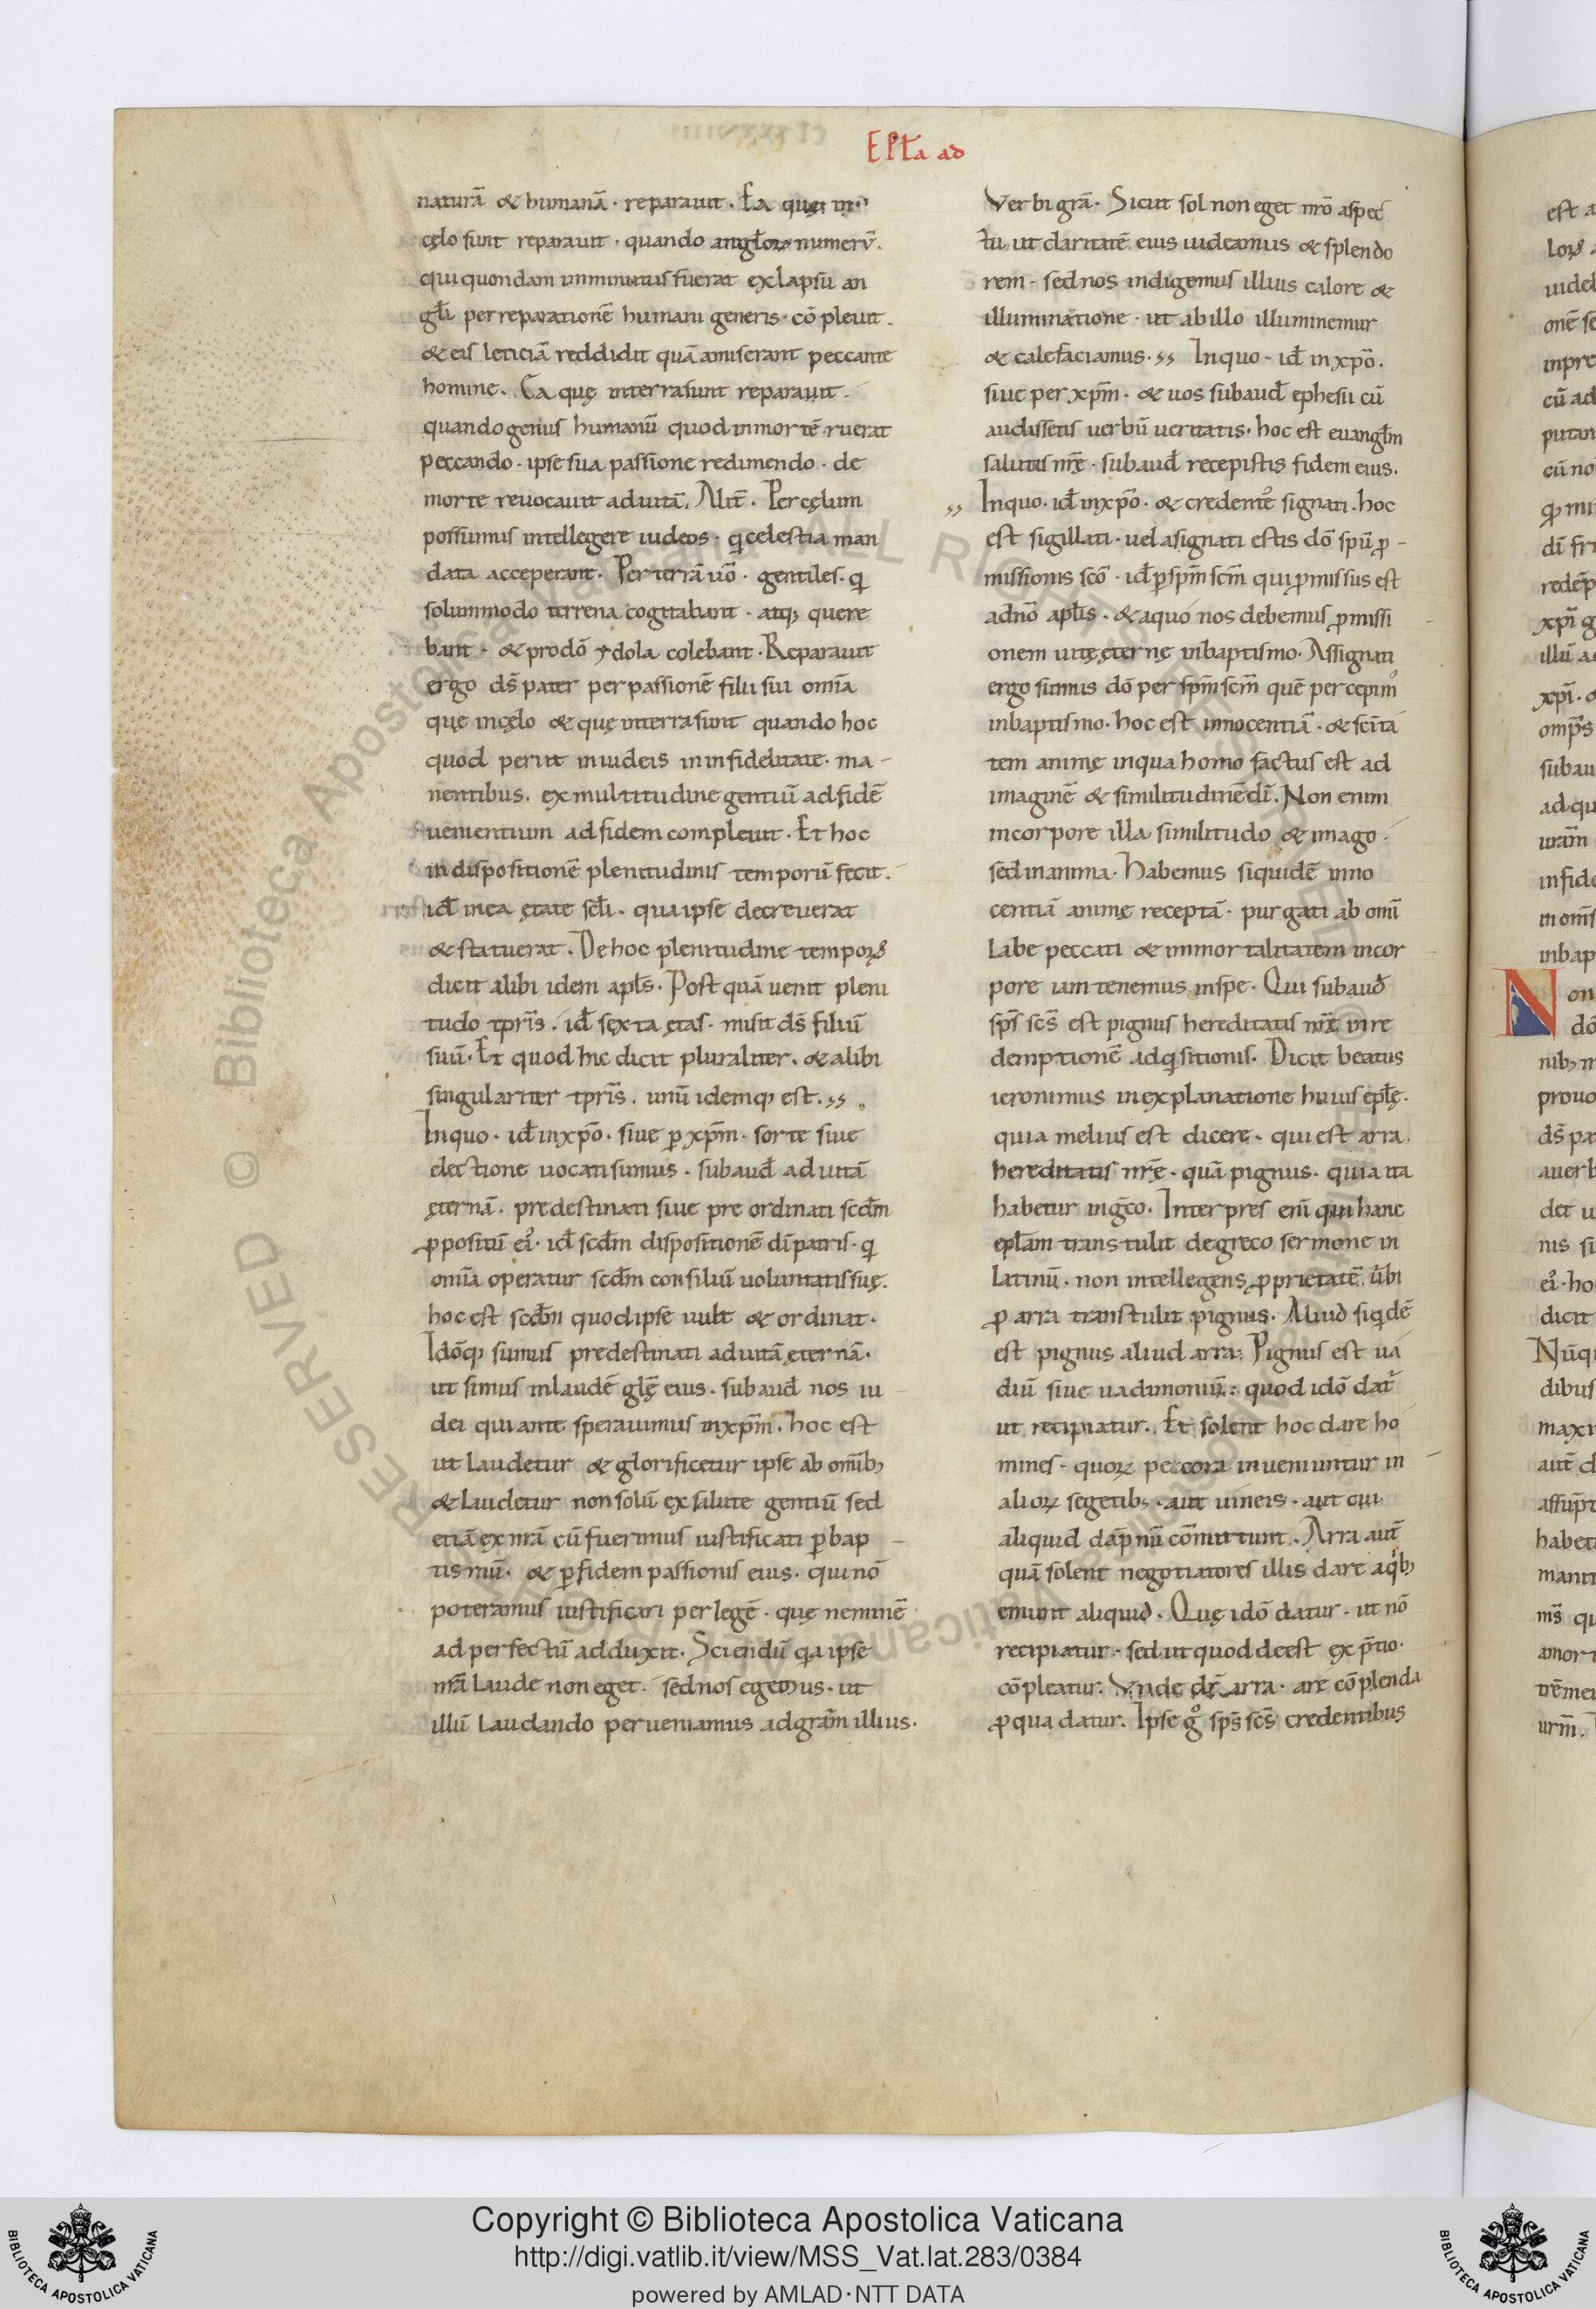 EPŁa ad
naturā & humanā · reparauit . Ea quę in ·
cęlo sunt reparauit · quando angłoꝝ numerū .
qui quondam imminutus fuerat ex lapsu an
głi per reparationē humani generis · cō pleuit .
& eis leticiā reddidit quā amiserant peccante
homine . Ea quę interra sunt reparauit .
quando genus humanū quod in mortē ruerat
peccando · ipse sua passione redimendo · de
morte reuocauit ad uitā . Alit̄ . Per cęlum
possumus intellegere iudeos · q̄ celestia man
data acceperant . Per terrā uō · gentiles · q̄
solummodo terrena cogitabant · atq; quere
bant · & pro dō ydola colebant · Reparauit
ergo ds̄ pater per passionē filii sui om̄ia
quę in cęlo & quę in terra sunt quando hoc
quod periit in iudeis in infidelitate · ma -
nentibus . ex multitudine gentiū ad fidē
uenientium ad fidem compleuit · Et hoc
in dispositionē plenitudinis temporū fecit .
id̄ in ea ętate scłi · qua ipse decreuerat
& statuerat . De hoc plenitudine temporꝝ
dicit alibi idem apłs . Post quā uenit pleni
tudo tpris̄ . id̄ sexta ętas · misit ds̄ filiū
suū . Et quod hic dicit pluraliter . & alibi
singulariter tpris̄ . unū idemq; est .,,
In quo · id̄ in xp̄o · siue ꝑ xp̄m · sorte siue
electione uocati sumus · subaud̄ ad uitā
ęternā . predestinati siue pre ordinati scd̄m
ꝓpositū ei' · id̄ scd̄m dispositionē dī patris · q̄
om̄ia operatur scd̄m consiliū uoluntatis suę .
hoc est scd̄m quod ipse uult & ordinat .
Idōq; sumus predestinati ad uitā ęternā .
ut simus in laudē glę̄ eius . subaud̄ nos iu
dei qui ante sperauimus in xp̄m . hoc est
ut laudetur & glorificetur ipse ab omīb;
& laudetur non solū ex salute gentiū sed
etiā ex nrā cū fuerimus iustificati ꝑ bap
tismū · & ꝑ fidem passionis eius · qui nō
poteramus iustificari per legē · quę neminē
ad perfectū adduxit · Sciendū q̄a ipse
nrā laude non eget . sed nos egemus · ut
illū laudando perueniamus ad grām illius .
Verbi grā . Sicut sol non eget nrō aspec
tu ut claritatē eius uideamus & splendo
rem · sed nos indigemus illius calore &
illuminatione · ut ab illo illuminemur
& calefaciamus .,, In quo · id̄ in xp̄o .
siue per xp̄m · & uos subaud̄ ephesii cū
audissetis uerbū ueritatis · hoc est euangłm
salutis nrę̄ · subaud̄ recepistis fidem eius .
,, In quo · id̄ in xp̄o · & credentes signati . hoc
est sigillati · uel asignati estis dō spū ꝓ -
missionis scō · id̄ ꝑ spm̄ scm̄ qui ꝓmissus est
ad nō apłis · & a quo nos debemus ꝓmissi
onem uitę ęternę in baptismo · Assignati
ergo sumus dō per spm̄ scm̄ quē percepim'
in baptismo · hoc est innocentiā · & scīta
tem animę in qua homo factus est ad
imaginē & similitudinē dī . Non enim
in corpore illa similitudo & imago .
sed in anima · Habemus siquidē inno
centiā animę receptā · purgati ab omī
labe peccati & immortalitatem in cor
pore iam tenemus in spe · Qui subaud̄
sps̄ scs̄ est pignus hereditatis nrę̄ in re
demptionē adq̄sitionis . Dicit beatus
ieronimus in explanatione huius epłę .
quia melius est dicere · qui est arra .
hereditatis nrę̄ · quā pignus · quia ita
habetur in gc̄o . Interpres enī qui hanc
epłam transtulit de greco sermone in
latinū · non intellegens ꝓprietatē uerbi
ꝓ arra transtulit pignus . Aliud siq̄dē
est pignus aliud arra . Pignus est ua
diū siue uadimoniū : quod idō dat̄
ut recipiatur . Et solent hoc dare ho
mines · quoꝝ peccora inueniuntur in
alioꝝ segetib; · aut uineis · aut cui
aliquid dāpnū cōmittunt . Arra aut̄
quā solent negotiatores illis dare a q̄b;
emunt aliquid . Quę idō datur · ut nō
recipiatur · sed ut quod deest ex p̄tio ·
cōpleatur . Vnde dr̄ arra · a re cōplenda
ꝓ qua datur . Ipse g° sps̄ scs̄ credentibus
Copyright © Biblioteca Apostolica Vaticana
http://digi.vatlib.it/view/MSS_Vat.lat.283/0384
powered by AMLAD·NTT DATA
BIBLIOTECA APOSTOLICA VATICANA
BIBLIOTECA APOSTOLICA VATICANA